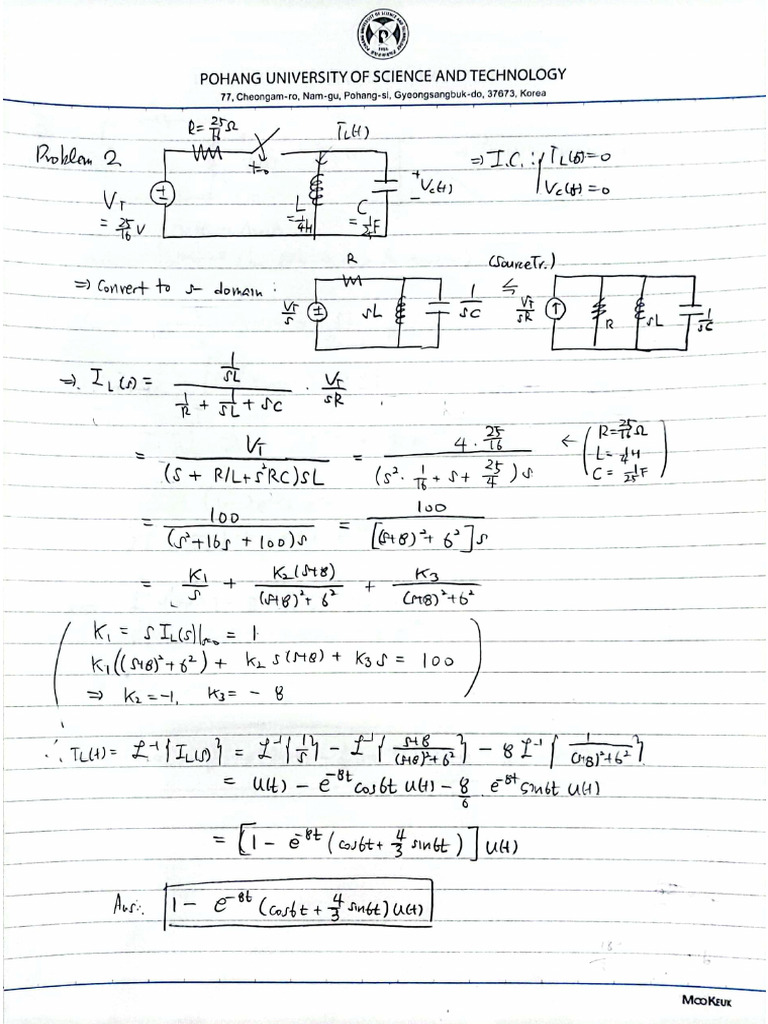 POHANG UNIVERSITY OF SCIENCE AND TECHNOLOGY
77, Cheongam-ro, Nam-gu, Pohang-si, Gyeongsangbuk-do, 37673, Korea
Problem 2
R = 25/16 Ω
t=0
I_L(t)
V_T = 25/16 V
L = 1/4 H
C = 1/25 F
+ V_C(t) −
⇒ I.C. : I_L(0) = 0
V_C(0) = 0
⇒ Convert to s- domain :
R
V_T/s
sL
1/sC
(Source Tr.)
⇋
V_T/sR
R
sL
1/sC
⇒ I_L(s) = (1/sL) / (1/R + 1/sL + sC) · V_T/sR
= V_T / (s + R/L + s²RC)sL = 4 · 25/16 / (s² · 1/16 + s + 25/4) s ← ( R = 25/16 Ω
L = 1/4 H
C = 1/25 F )
= 100 / (s² + 16s + 100)s = 100 / [(s+8)² + 6²]s
= K₁/s + K₂(s+8) / (s+8)² + 6² + K₃ / (s+8)² + 6²
( K₁ = s I_L(s)|s=0 = 1
K₁((s+8)² + 6²) + K₂ s(s+8) + K₃ s = 100
⇒ K₂ = −1, K₃ = − 8 )
∴ I_L(t) = ℒ⁻¹{I_L(s)} = ℒ⁻¹{1/s} − ℒ⁻¹{s+8 / (s+8)² + 6²} − 8 ℒ⁻¹{1 / (s+8)² + 6²}
= u(t) − e^-8t cos6t u(t) − 8/6 · e^-8t sin6t u(t)
= [1 − e^-8t (cos6t + 4/3 sin6t)] u(t)
Ans:. 1 − e^-8t (cos6t + 4/3 sin6t) u(t)
MOOKEUK